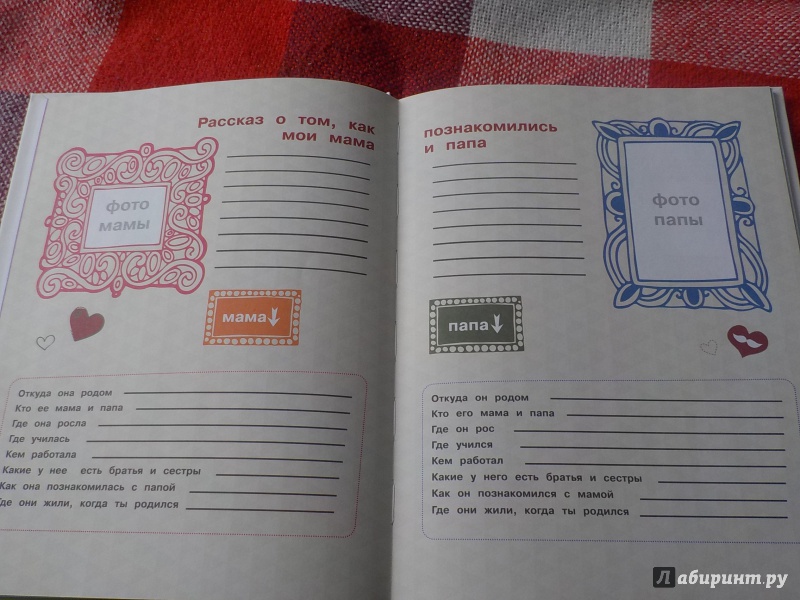 Рассказ о том, как
мои мама
фото
мамы
мама
Откуда она родом
Кто ее мама и папа
Где она росла
Где училась
Кем работала
Какие у нее есть братья и сестры
Как она познакомилась с папой
Где они жили, когда ты родился
познакомились
и папа
фото
папы
папа
Откуда он родом
Кто его мама и папа
Где он рос
Где учился
Кем работал
Какие у него есть братья и сестры
Как он познакомился с мамой
Где они жили, когда ты родился
Лабиринт.ру